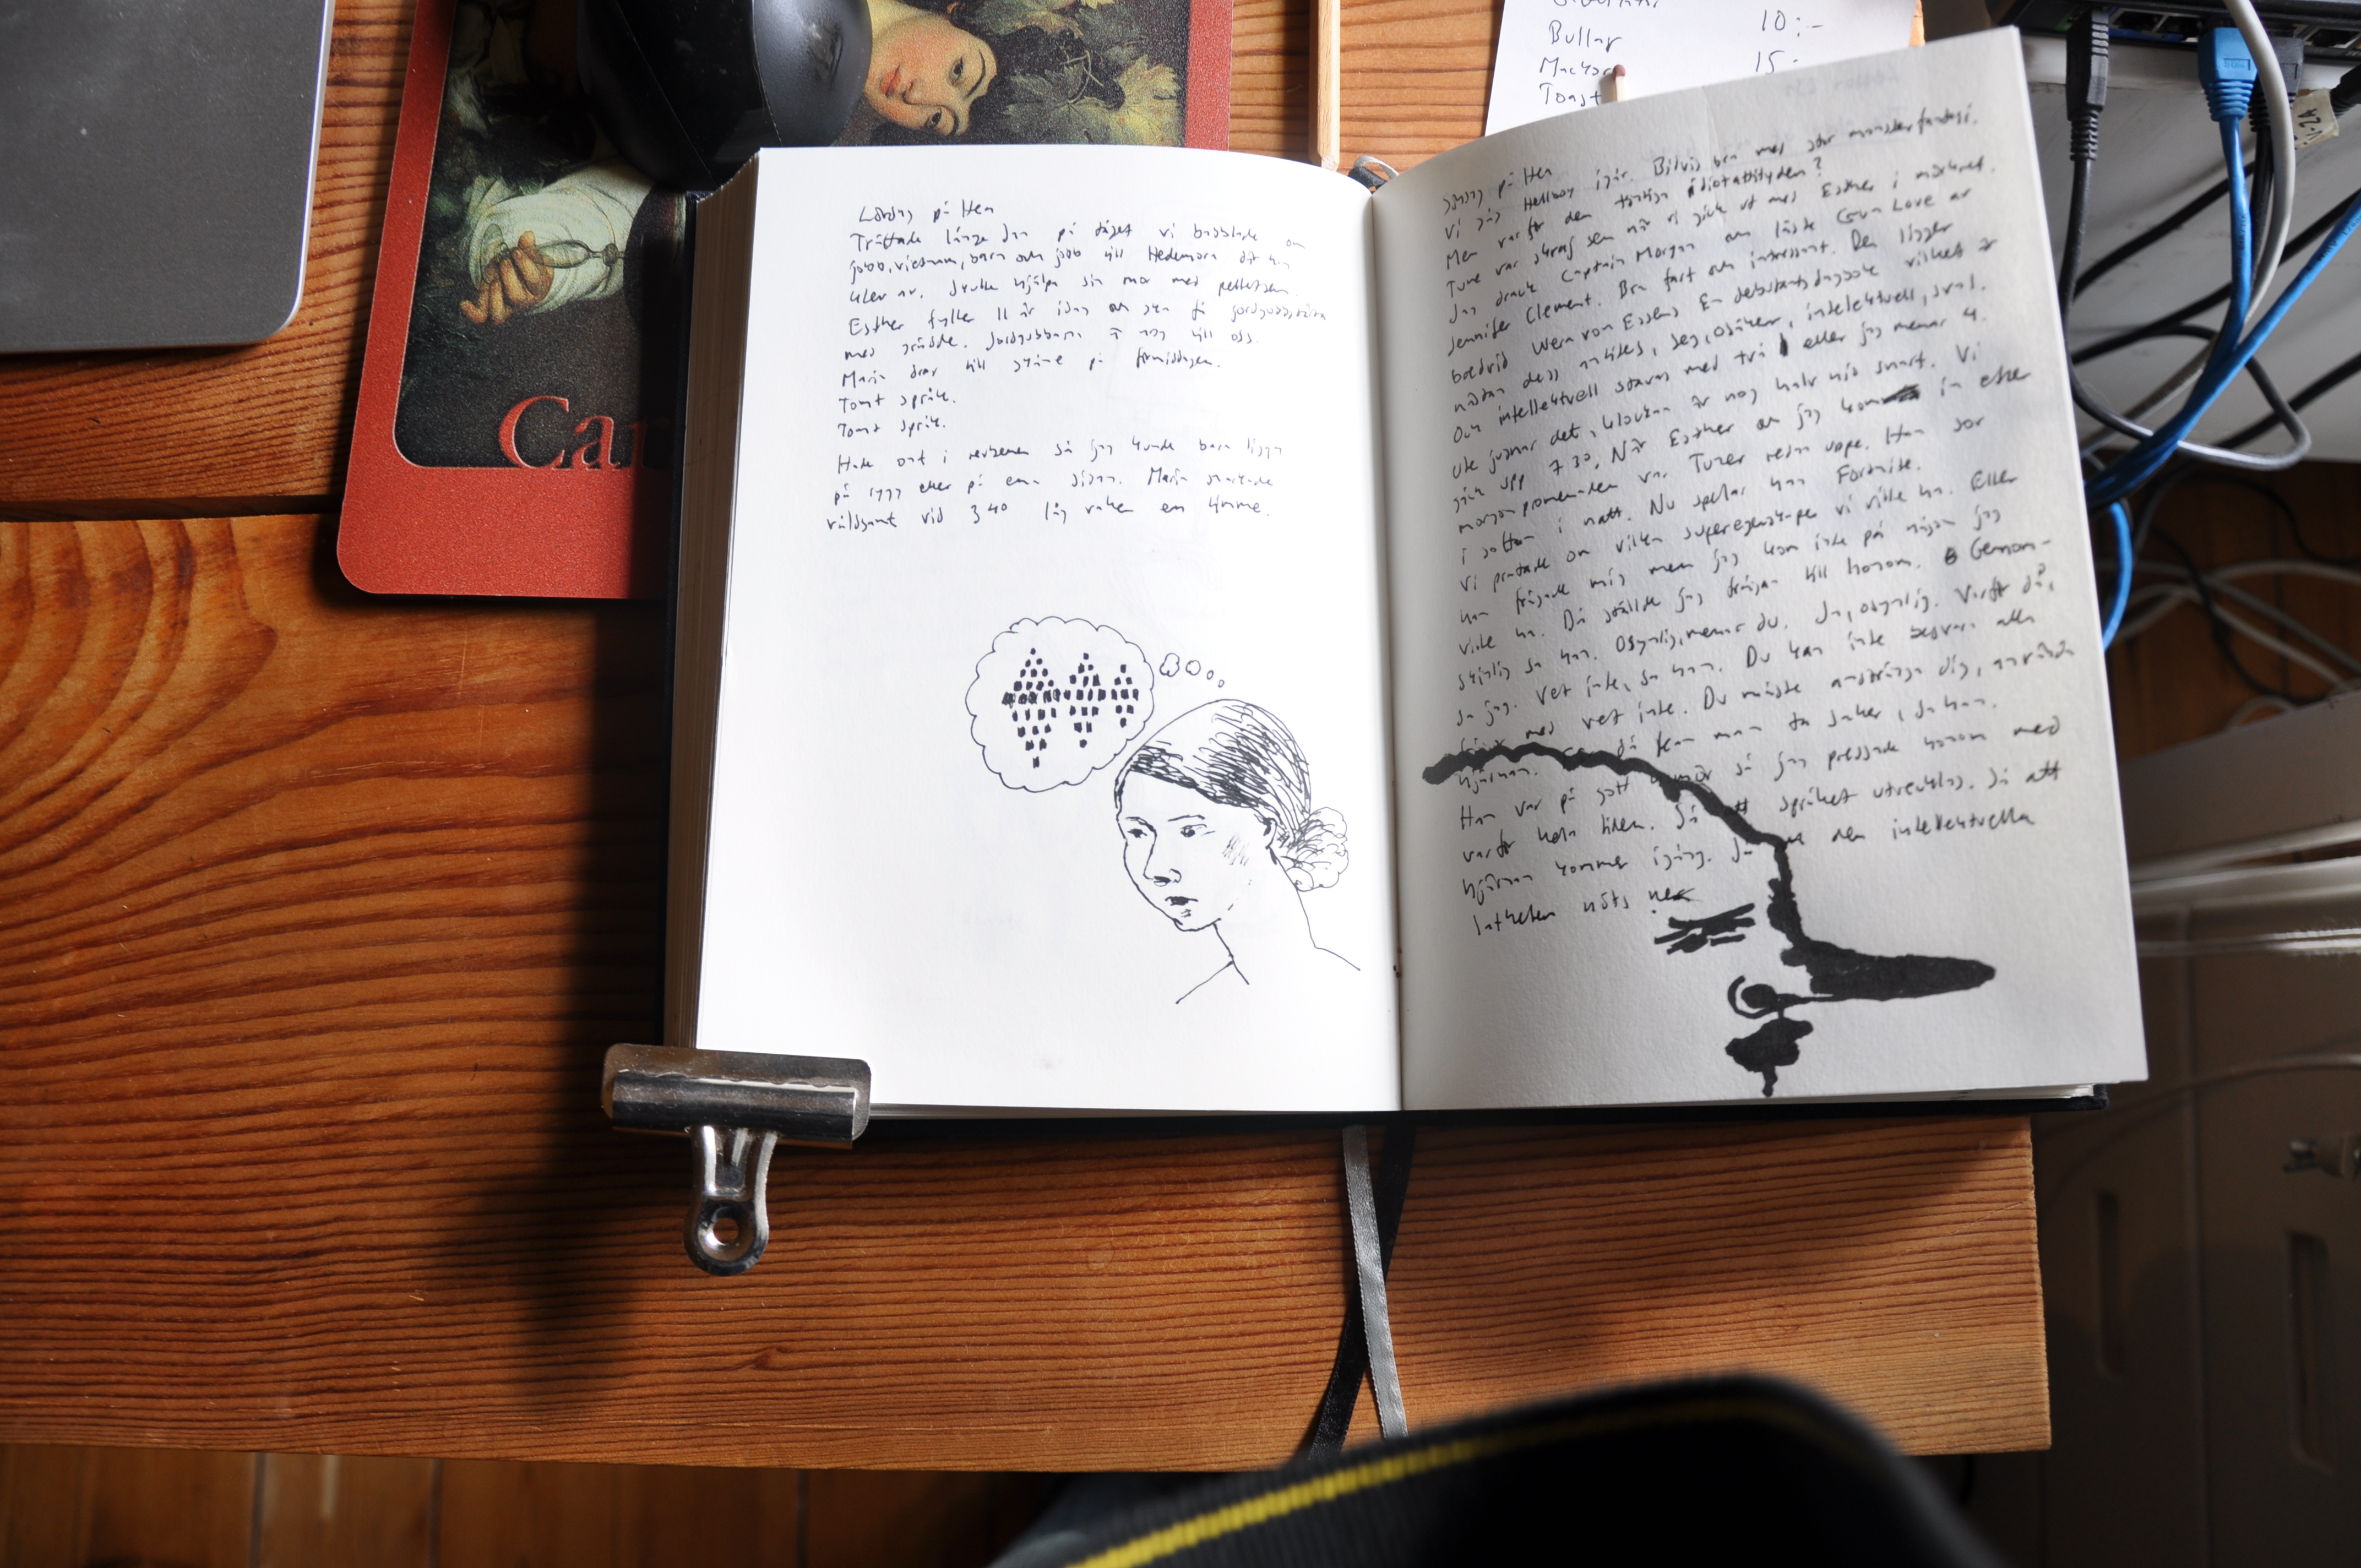 Car
Bullar 10:-
Mackor 15:-
Toast
Lördag på Hen
Trättade länge på tåget vi babblade om
jobb, vietnam, barn och jobb till Hedemora dit han
klev av. Skulle hjälpa sin mor med pelletsen.
Esther fyller 11 år idag och ska få jordgubbstårta
med grädde. Jordgubbarna är nog till oss.
Maria drar till på förmiddagen.
Tomt språk.
Tomt språk.
Hade ont i revbenen så jag kunde bara ligga
på rygg eller på ena sidan. Maria snarkade
våldsamt vid 3 40 låg vaken en timme.
Söndag på Hen
Vi såg Hellboy igår. Bitvis bra med stor monsterfantasi.
Men varför den töntiga idiotattityden?
Ture var skraj sen när vi gick ut med Esther i mörkret.
Jag drack Captain Morgan och läste Gun Love av
Jennifer Clement. Bra fart och intressant. Den ligger
bredvid Wera von Essens En debutants dagbok vilket är
nästan dess antites, seg, osäker, intelektuell, sval.
Och intellektuell stavas med två l eller jag menar 4.
Ute gryr det, klockan är nog halv nio snart. Vi
gick upp 7 30. När Esther och jag kom in efter
morgonpromenaden var Ture redan uppe. Han sov
i soffan i natt. Nu spelar han Fortnite.
Vi pratade om vilken superegenskap vi ville ha. Eller
han frågade mig men jag kom inte på någon jag
ville ha. Då ställde jag frågan till honom. Genom-
skinlig sa han. Osynlig, menar du. Ja, osynlig. Varför då,
sa jag. Vet inte, sa han. Du kan inte besvara alla
frågor med vet inte. Du måste anstränga dig, använda
hjärnan. då kan man ta saker, sa han.
Han var på gott humör så jag pressade honom med
varför hela tiden. Så att språket utvecklas. Så att
hjärnan kommer igång. Så att den intellektuella
lathelen nöts ner